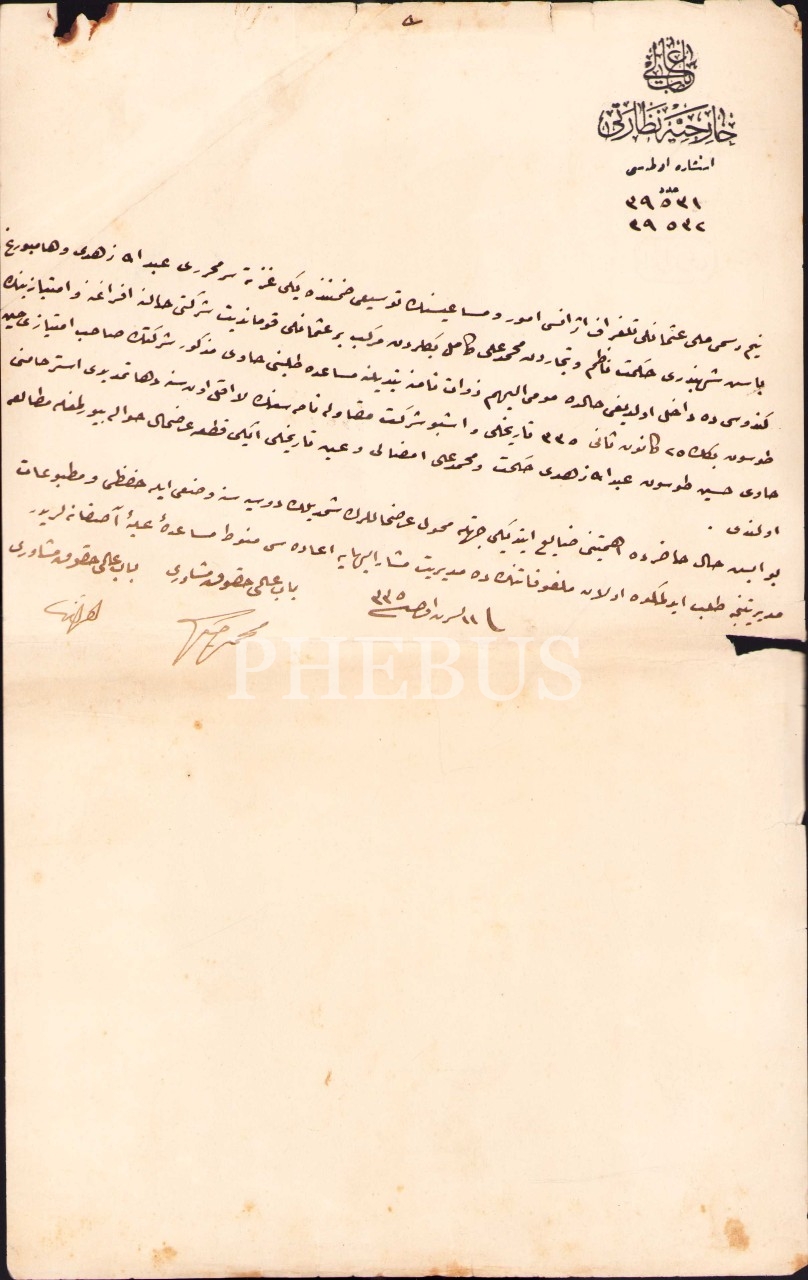 باب عالی
خارجیه نظارتی
استشاره اوطه‌سی
عدد
٣٩٥٣١
٣٩٥٣٢
نیم رسمی ملی عثمانلی تلغراف اژانسی امور و مساعیسنك توسیعی ضمننده یكی غزته سر محرری عبد الله زهدی و هامبورغ
باش شهبندری حكمت ناظم و تجاردن محمد علی كامل بكلردن مركب بر عثمانلی قوماندیت شركتی حالنه افراغنه و امتیازینك
كندوسی ده داخل اولدیغی حالده مومی الیهم ذوات نامنه تبدیلنه مساعده طلبنی حاوی مذكور شركتك صاحب امتیازی حسین
طوسون بكك ٢٥ كانون ثانی ٣٣٥ تاریخلی و اشبو شركت مقاوله نامه سنك لااقل اون سنه دها تمدیدی استرحامنی
حاوی حسین طوسون عبد الله زهدی حكمت و محمد علی امضالی و عین تاریخلی ایكی قطعه عرضحال حواله بیوریلمغله مطالعه
اولندی .
بو ایسه حال حاضرده اهمیتنی ضایع ایتدیكی جهتله محول عرضحاللرك شمدیلك دوسیه سنه وضعی ایله حفظی و مطبوعات
مدیریتنجه طلب ایدلمكده اولان ملفوفاتنك ده مدیریت مشار الیهایه اعاده سی منوط مساعدهٔ علیهٔ آصفانه لریدر
٣٣٥
باب عالی حقوق مشاوری
باب عالی حقوق مشاوری
PHEBUS